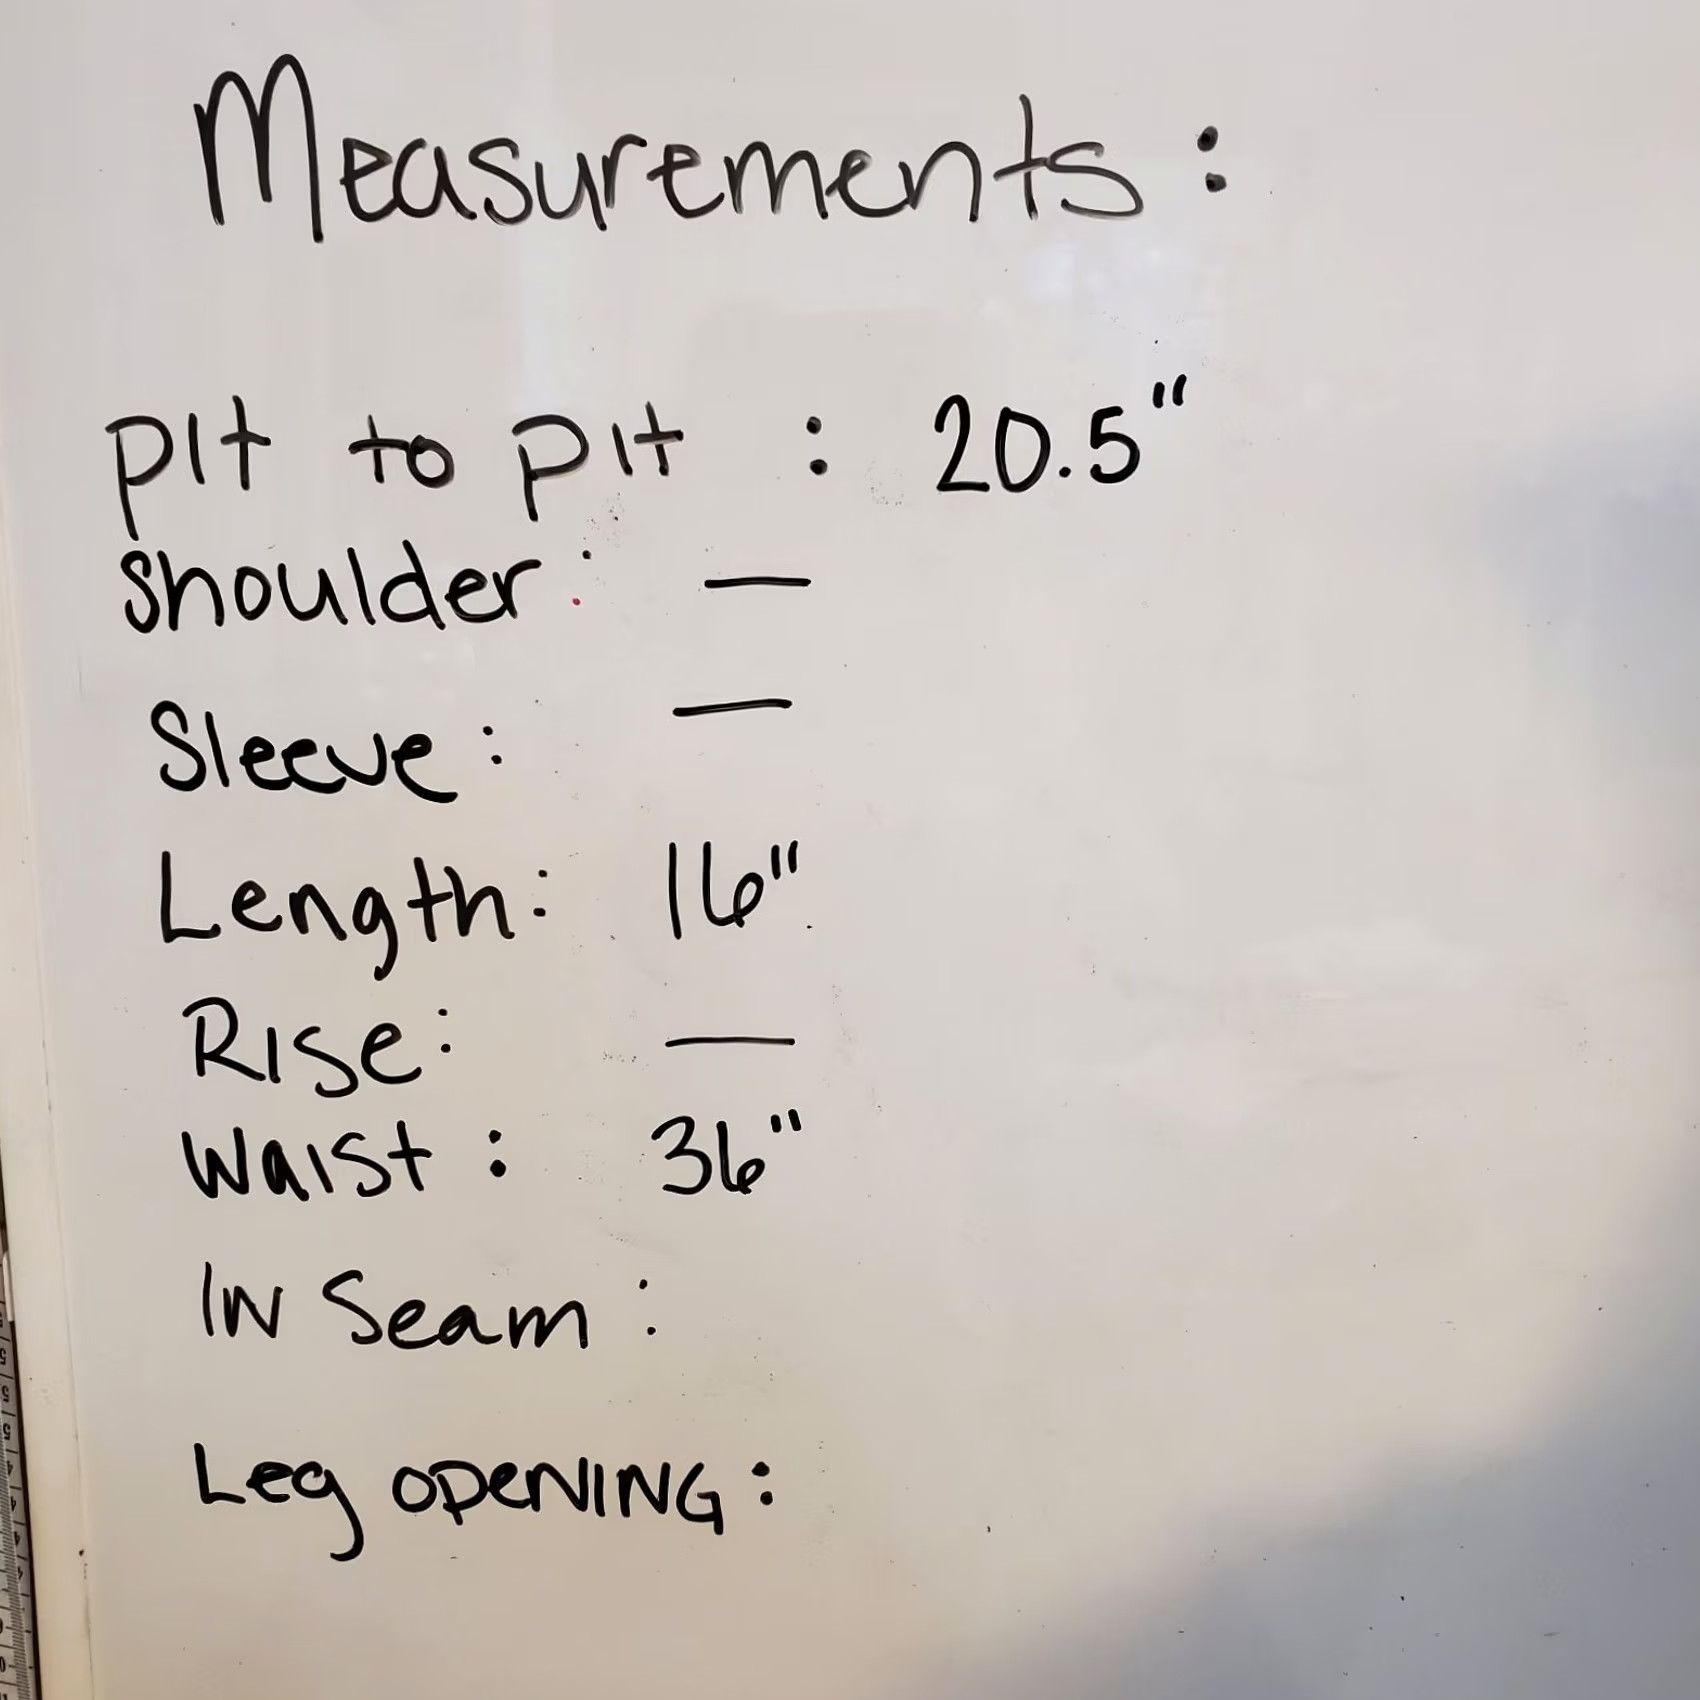 Measurements:
pit to pit : 20.5"
Shoulder: —
Sleeve: —
Length: 16"
Rise: —
Waist: 36"
IN Seam:
Leg OPENING: